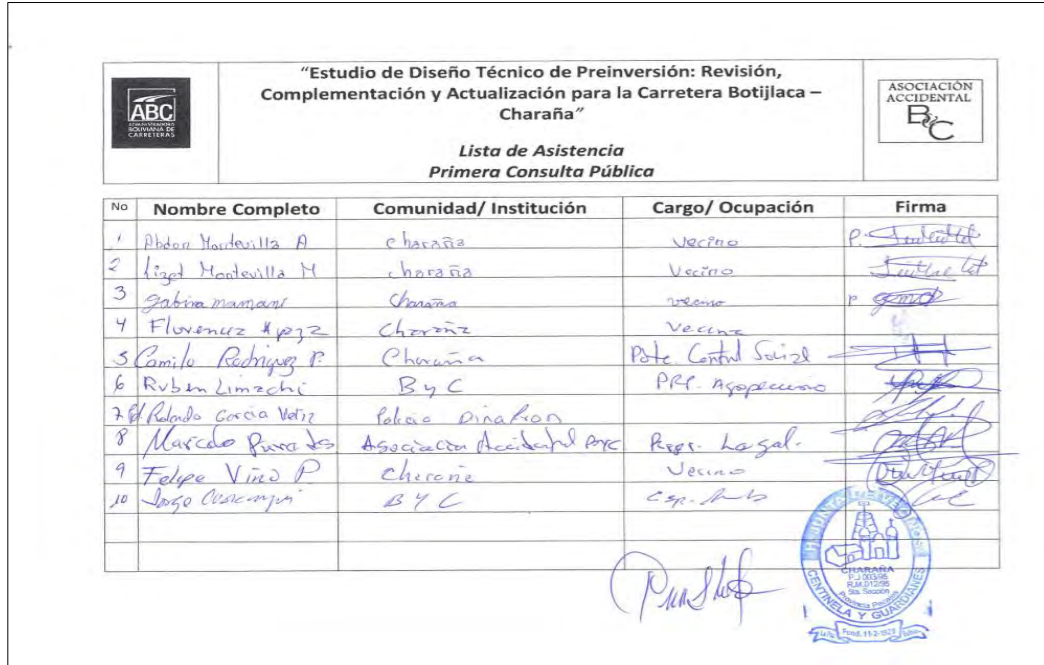 ABC
ADMINISTRADORA
BOLIVIANA DE
CARRETERAS
"Estudio de Diseño Técnico de Preinversión: Revisión,
Complementación y Actualización para la Carretera Botijlaca –
Charaña"
Lista de Asistencia
Primera Consulta Pública
ASOCIACIÓN
ACCIDENTAL
ByC
No Nombre Completo Comunidad/ Institución Cargo/ Ocupación Firma
1 Abdon Montevilla A charaña Vecino
2 Lizet Montevilla M charaña Vecino
3 Gabina mamani Charaña vecino
4 Florencia Charaña Vecina
5 Camilo Rodriguez P. Charaña Pdte. Control Social
6 Ruben Limachi B y C
7 Rolando Garcia Policia
8 Marcelo Asociación Accidental ByC Repr. Legal.
9 Felipe Viño P Charaña Vecino
10 Jorge B Y C
CHARAÑA
P.J 003/95
R.M.012/95
5ta. Sección
Provincia Pacajes
CENTINELA Y GUARDIANES
Fund. 11-2-1928